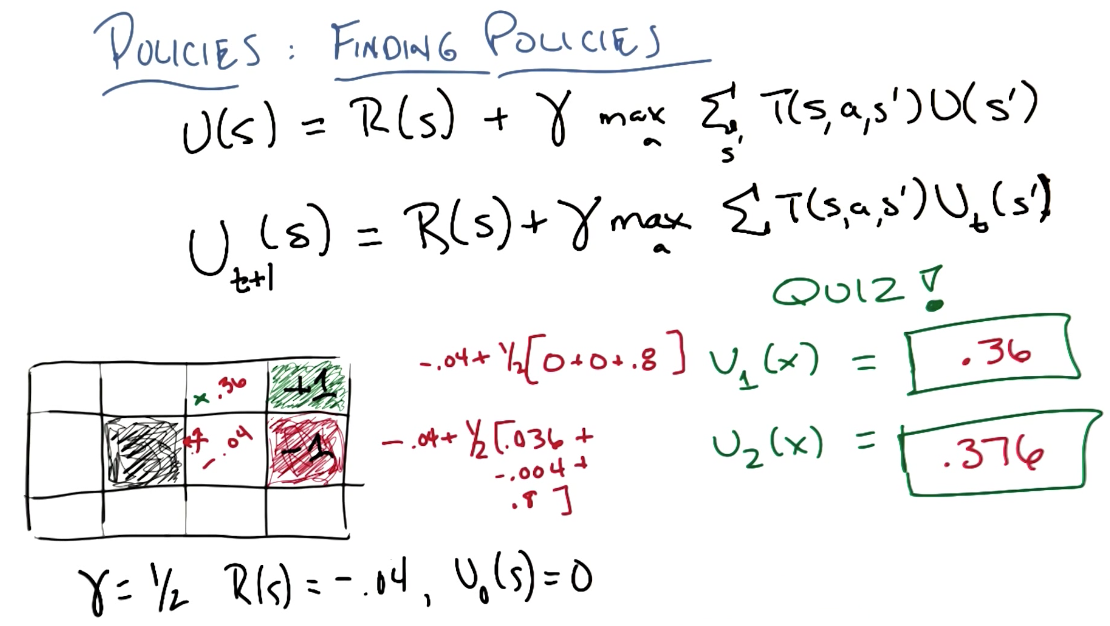 POLICIES : FINDING POLICIES
U(s) = R(s) + γ max_a Σ_s' T(s,a,s') U(s')
U_t+1(s) = R(s) + γ max_a Σ T(s,a,s') U_t(s')
QUIZ!
x .36 +1
-.04 -1
-.04 + 1/2 [0+0+.8] U_1(x) = .36
-.04 + 1/2 [.036 +
-.004 +
.8]
U_2(x) = .376
γ = 1/2 R(s) = -.04, U_0(s) = 0